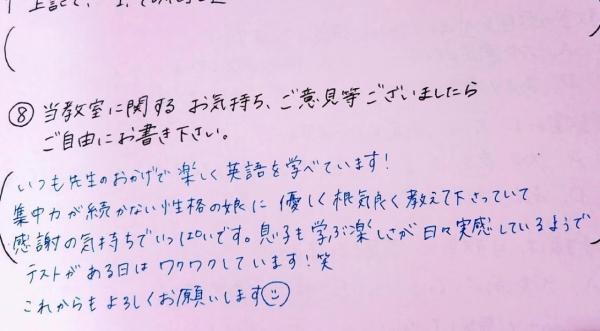 ⑧ 当教室に関する お気持ち、ご意見等ございましたら
ご自由にお書き下さい。
いつも先生のおかげで楽しく英語を学べています!
集中力が続かない性格の娘に 優しく根気良く教えて下さっていて
感謝の気持ちでいっぱいです。息子も学ぶ楽しさが日々実感しているようで
テストがある日はワクワクしています!笑
これからもよろしくお願いします☺